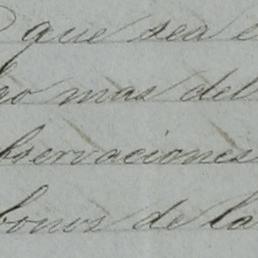 que sea e
go mas del
bservaciones
bonos de la